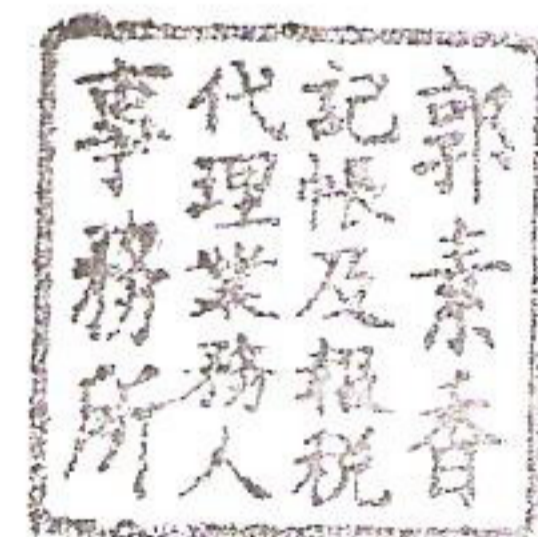 郭素香
記帳及報稅
代理業務人
事務所